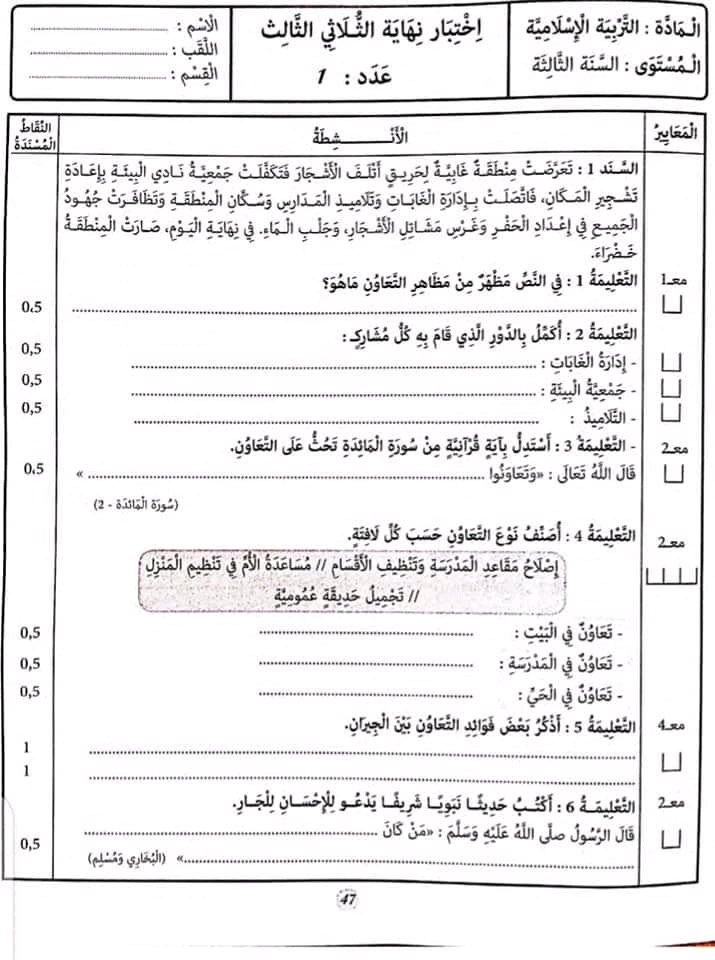 الْمَادَّة : التَّرْبِيَة الْإِسْلَامِيَّة
الْمُسْتَوَى : السَّنَة الثَّالِثَة
اِخْتِبَار نِهَايَة الثُّلَاثِي الثَّالِث
عَدَد : 1
الْاِسْم : ..............................
اللَّقَب : ..............................
الْقِسْم : ..............................
الْمَعَايِيرُ
الْأَنْـــشِطَةُ
النِّقَاطُ الْمُسْنَدَةُ
السَّنَد 1 : تَعَرَّضَتْ مِنْطَقَةٌ غَابِيَّةٌ لِحَرِيقٍ أَتْلَفَ الْأَشْجَارَ فَتَكَفَّلَتْ جَمْعِيَّةُ نَادِي الْبِيئَةِ بِإِعَادَةِ
تَشْجِيرِ الْمَكَانِ، فَاتَّصَلَتْ بِإِدَارَةِ الْغَابَاتِ وَتَلَامِيذِ الْمَدَارِسِ وَسُكَّانِ الْمِنْطَقَةِ وَتَظَافَرَتْ جُهُودُ
الْجَمِيعِ فِي إِعْدَادِ الْحَفْرِ وَغَرْسِ مَشَاتِلِ الْأَشْجَارِ، وَجَلْبِ الْمَاءِ. فِي نِهَايَةِ الْيَوْمِ، صَارَتْ الْمِنْطَقَةُ
خَضْرَاءَ.
معـ1
التَّعْلِيمَةُ 1 : فِي النَّصِّ مَظْهَرٌ مِنْ مَظَاهِرِ التَّعَاوُنِ مَاهُوَ؟
.............................. 0،5
التَّعْلِيمَةُ 2 : أُكَمِّلُ بِالدَّوْرِ الَّذِي قَامَ بِهِ كُلُّ مُشَارِكٍ :
- إِدَارَةُ الْغَابَاتِ : .............................. 0،5
- جَمْعِيَّةُ الْبِيئَةِ : .............................. 0،5
- التَّلَامِيذُ : .............................. 0،5
معـ2
- التَّعْلِيمَةُ 3 : أَسْتَدِلُّ بِآيَةٍ قُرْآنِيَّةٍ مِنْ سُورَةِ الْمَائِدَةِ تَحُثُّ عَلَى التَّعَاوُنِ.
قَالَ اللَّهُ تَعَالَى : «وَتَعَاوَنُوا .............................. » 0،5
(سُورَة الْمَائدَة - 2)
معـ2
التَّعْلِيمَةُ 4 : أُصَنِّفُ نَوْعَ التَّعَاوُنِ حَسَبَ كُلِّ لَافِتَةٍ.
إِصْلَاحُ مَقَاعِدِ الْمَدْرَسَةِ وَتَنْظِيفِ الْأَقْسَامِ // مُسَاعَدَةُ الْأُمِّ فِي تَنْظِيمِ الْمَنْزِلِ
// تَجْمِيلُ حَدِيقَةٍ عُمُومِيَّةٍ
- تَعَاوُنٌ فِي الْبَيْتِ : .............................. 0,5
- تَعَاوُنٌ فِي الْمَدْرَسَةِ : .............................. 0,5
- تَعَاوُنٌ فِي الْحَيِّ : .............................. 0,5
معـ4
التَّعْلِيمَةُ 5 : أَذْكُرُ بَعْضَ فَوَائِدِ التَّعَاوُنِ بَيْنَ الْجِيرَانِ.
.............................. 1
.............................. 1
معـ2
التَّعْلِيمَةُ 6 : أَكْتُبُ حَدِيثًا نَبَوِيًّا شَرِيفًا يَدْعُو لِلْإِحْسَانِ لِلْجَارِ.
قَالَ الرَّسُولُ صَلَّى اللَّهُ عَلَيْهِ وَسَلَّمَ : «مَنْ كَانَ ..............................
..............................» (الْبُخَارِي وَمُسْلِم) 0,5
47